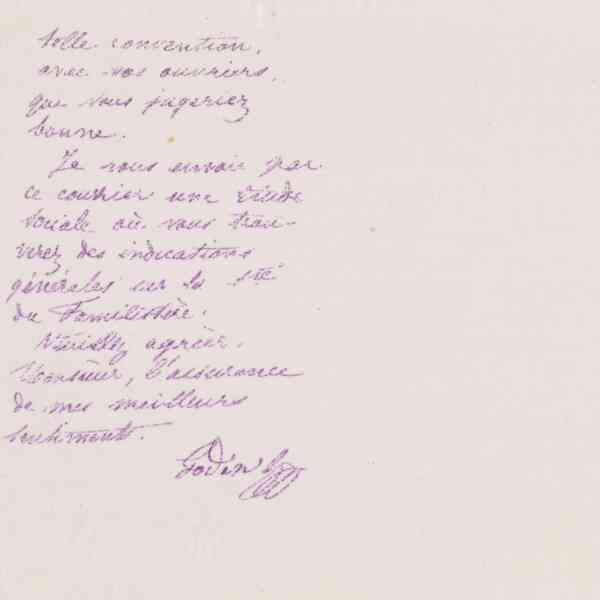 telle convention,
avec vos ouvriers,
que vous jugeriez
bonne.
Je vous envoie par
ce courrier une étude
sociale où vous trou-
verez des indications
générales sur la Sté
du Familistère.
Veuillez agréer,
Monsieur, l'assurance
de mes meilleurs
sentiments.
Godin